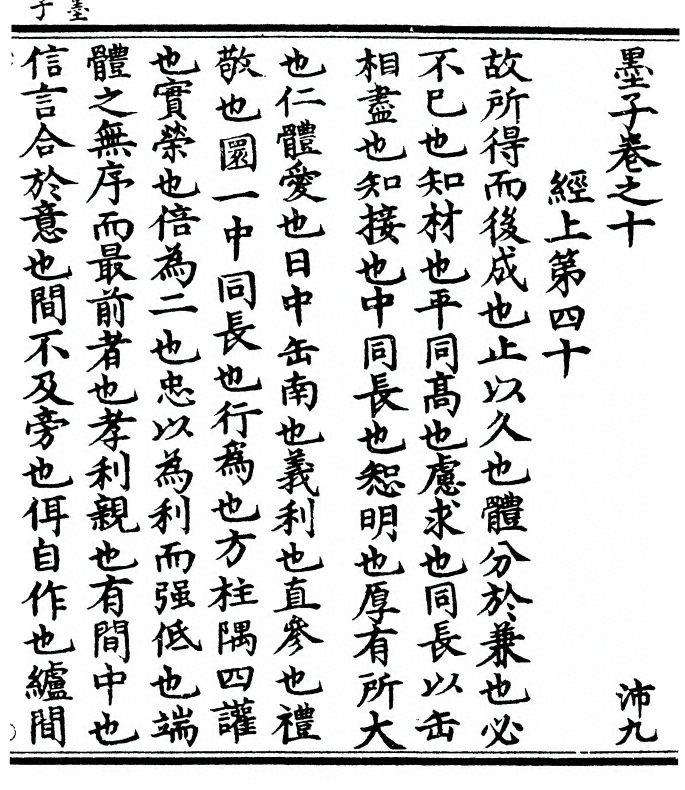 墨子
墨子卷之十 沛九
經上第四十
故所得而後成也止以久也體分於兼也必
不巳也知材也平同髙也慮求也同長以缶
相盡也知接也中同長也恕明也厚有所大
也仁體愛也日中缶南也義利也直參也禮
敬也圜一中同長也行爲也方柱隅四讙
也實榮也倍為二也忠以為利而强低也端
體之無序而最前者也孝利親也有間中也
信言合於意也間不及旁也佴自作也纑間